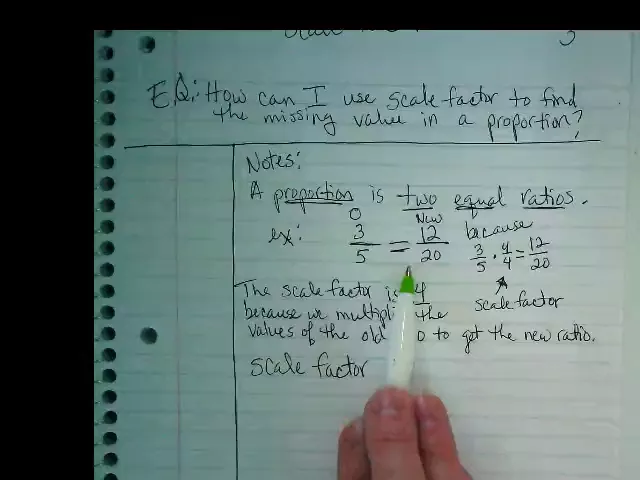 E.Q.: How can I use scale factor to find
the missing value in a proportion?
Notes:
A proportion is two equal ratios.
O New
ex: 3/5 = 12/20 because
3/5 · 4/4 = 12/20
scale factor
The scale factor is 4
because we the
values of the old to get the new ratio.
scale factor